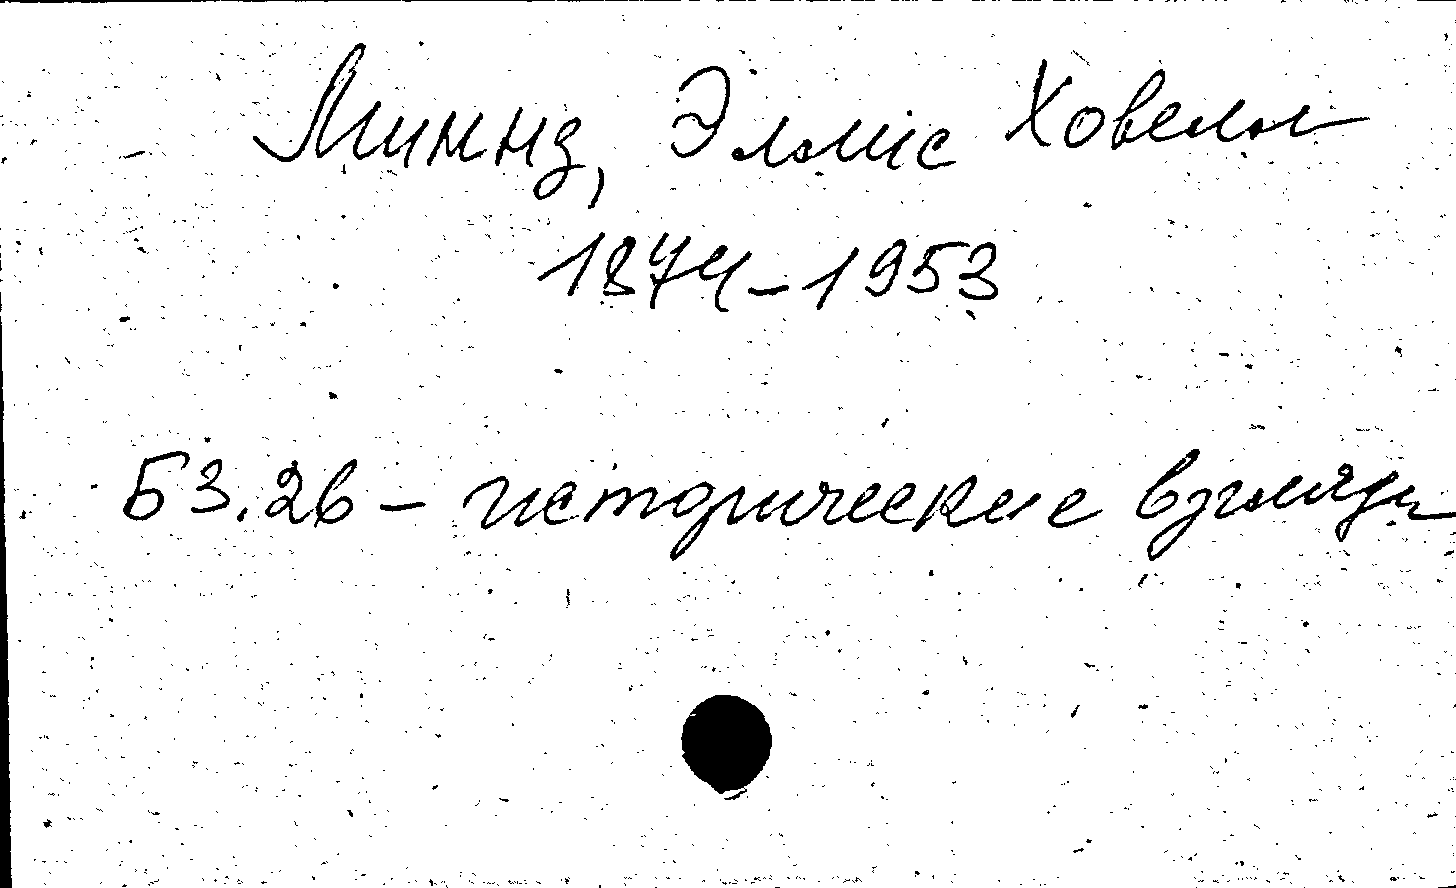 Миннз, Эллис Ховелл
1874-1953
Б3.2в - исторические взгляды